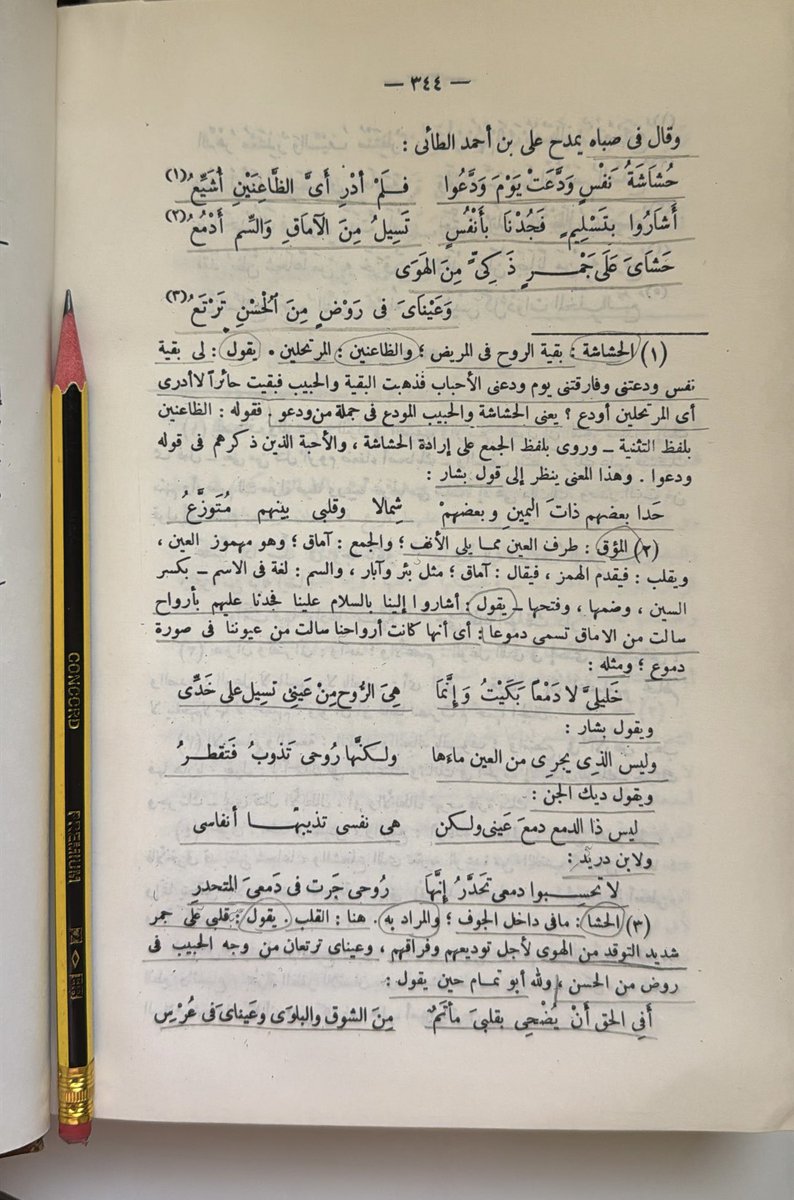 — ٣٤٤ —
وقال فى صباه يمدح على بن أحمد الطائى :
حُشَاشَةُ نَفْسٍ وَدَّعَتْ يَوْمَ وَدَّعُوا فَلَمْ أَدْرِ أَىَّ الظَّاعِنَيْنِ أُشَيِّعُ (١)
أَشَارُوا بِتَسْلِيمٍ فَجُدْنَا بِأَنْفُسٍ تَسِيلُ مِنَ الْآمَاقِ وَالسِّم أَدْمُعُ (٢)
حَشَاىَ عَلَى جَمْرٍ ذَكِىٍّ مِنَ الْهَوَى
وَعَيْنَاىَ فى رَوْضٍ مِنَ الْحُسْنِ تَرْتَعُ (٣)
(١) الحشاشة : بقية الروح فى المريض ؛ والظاعنين : المرتحلين . يقول : لى بقية
نفس ودعتنى وفارقتنى يوم ودعنى الأحباب فذهبت البقية والحبيب فبقيت حائراً لا أدرى
أى المرتحلين أودع ؟ يعنى الحشاشة والحبيب المودع فى جملة من ودعو . فقوله : الظاعنين
بلفظ التثنية ــ وروى بلفظ الجمع على إرادة الحشاشة ، والأحبة الذين ذكرهم فى قوله
ودعوا . وهذا المعنى ينظر إلى قول بشار :
حَدا بعضهم ذاتَ اليمين وبعضهمْ شِمالا وقلبى بينهم مُتَوَزَّعُ
(٢) المؤق : طرف العين مما يلى الأنف ؛ والجمع : آماق ؛ وهو مهموز العين ،
ويقلب : فيقدم الهمز ، فيقال : آماق ؛ مثل بئر وآبار ، والسم : لغة فى الاسم ــ بكسر
السين ، وضمها ، وفتحها ــ يقول : أشاروا إلينا بالسلام علينا فجدنا عليهم بأرواح
سالت من الاماق تسمى دموعا : أى أنها كانت أرواحنا سالت من عيوننا فى صورة
دموع ؛ ومثله :
خَلِيلىَّ لا دَمْعاً بَكَيْتُ وَإِنَّمَا هِىَ الرُّوح مِنْ عَيْنِى تسيل على خَدِّى
ويقول بشار :
وليس الذِى يجرِى من العين ماءها ولـكنَّها رُوحى تَذوبُ فَتَقطرُ
ويقول ديك الجن :
ليس ذا الدمع دمعَ عَينى ولكن هى نفسى تذيبهـا أنفاسى
ولابن دريد :
لا تحسِبوا دمعى تَحَدَّرُ إِنَّهَا رُوحى جَرت فى دَمعىَ المتحدرِ
(٣) الحشا : مافى داخل الجوف ؛ والمراد به . هنا : القلب . يقول : قلبى على جمر
شديد التوقد من الهوى لأجل توديعهم وفراقهم ، وعيناى ترتعان من وجه الحبيب فى
روض من الحسن ، ولله أبو تمام حين يقول :
أَفِى الحق أَنْ يُضْحِى بقلبىَ مأتَمٌ مِنَ الشوق والبلوَى وعَيناىَ فى عُرْسِ
CONCORD
PREMIUM